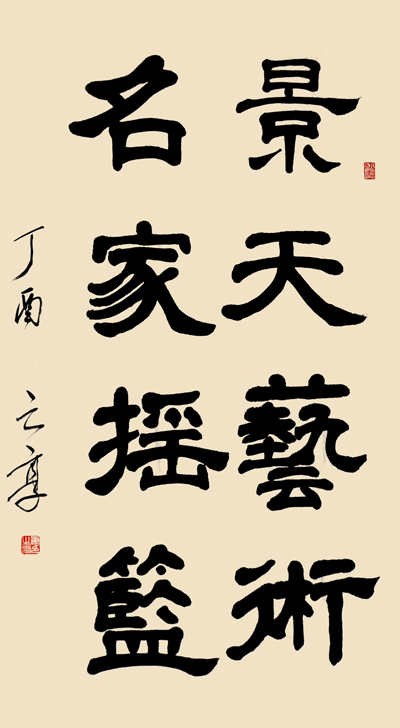 景天藝術
名家摇籃
丁酉 云亭